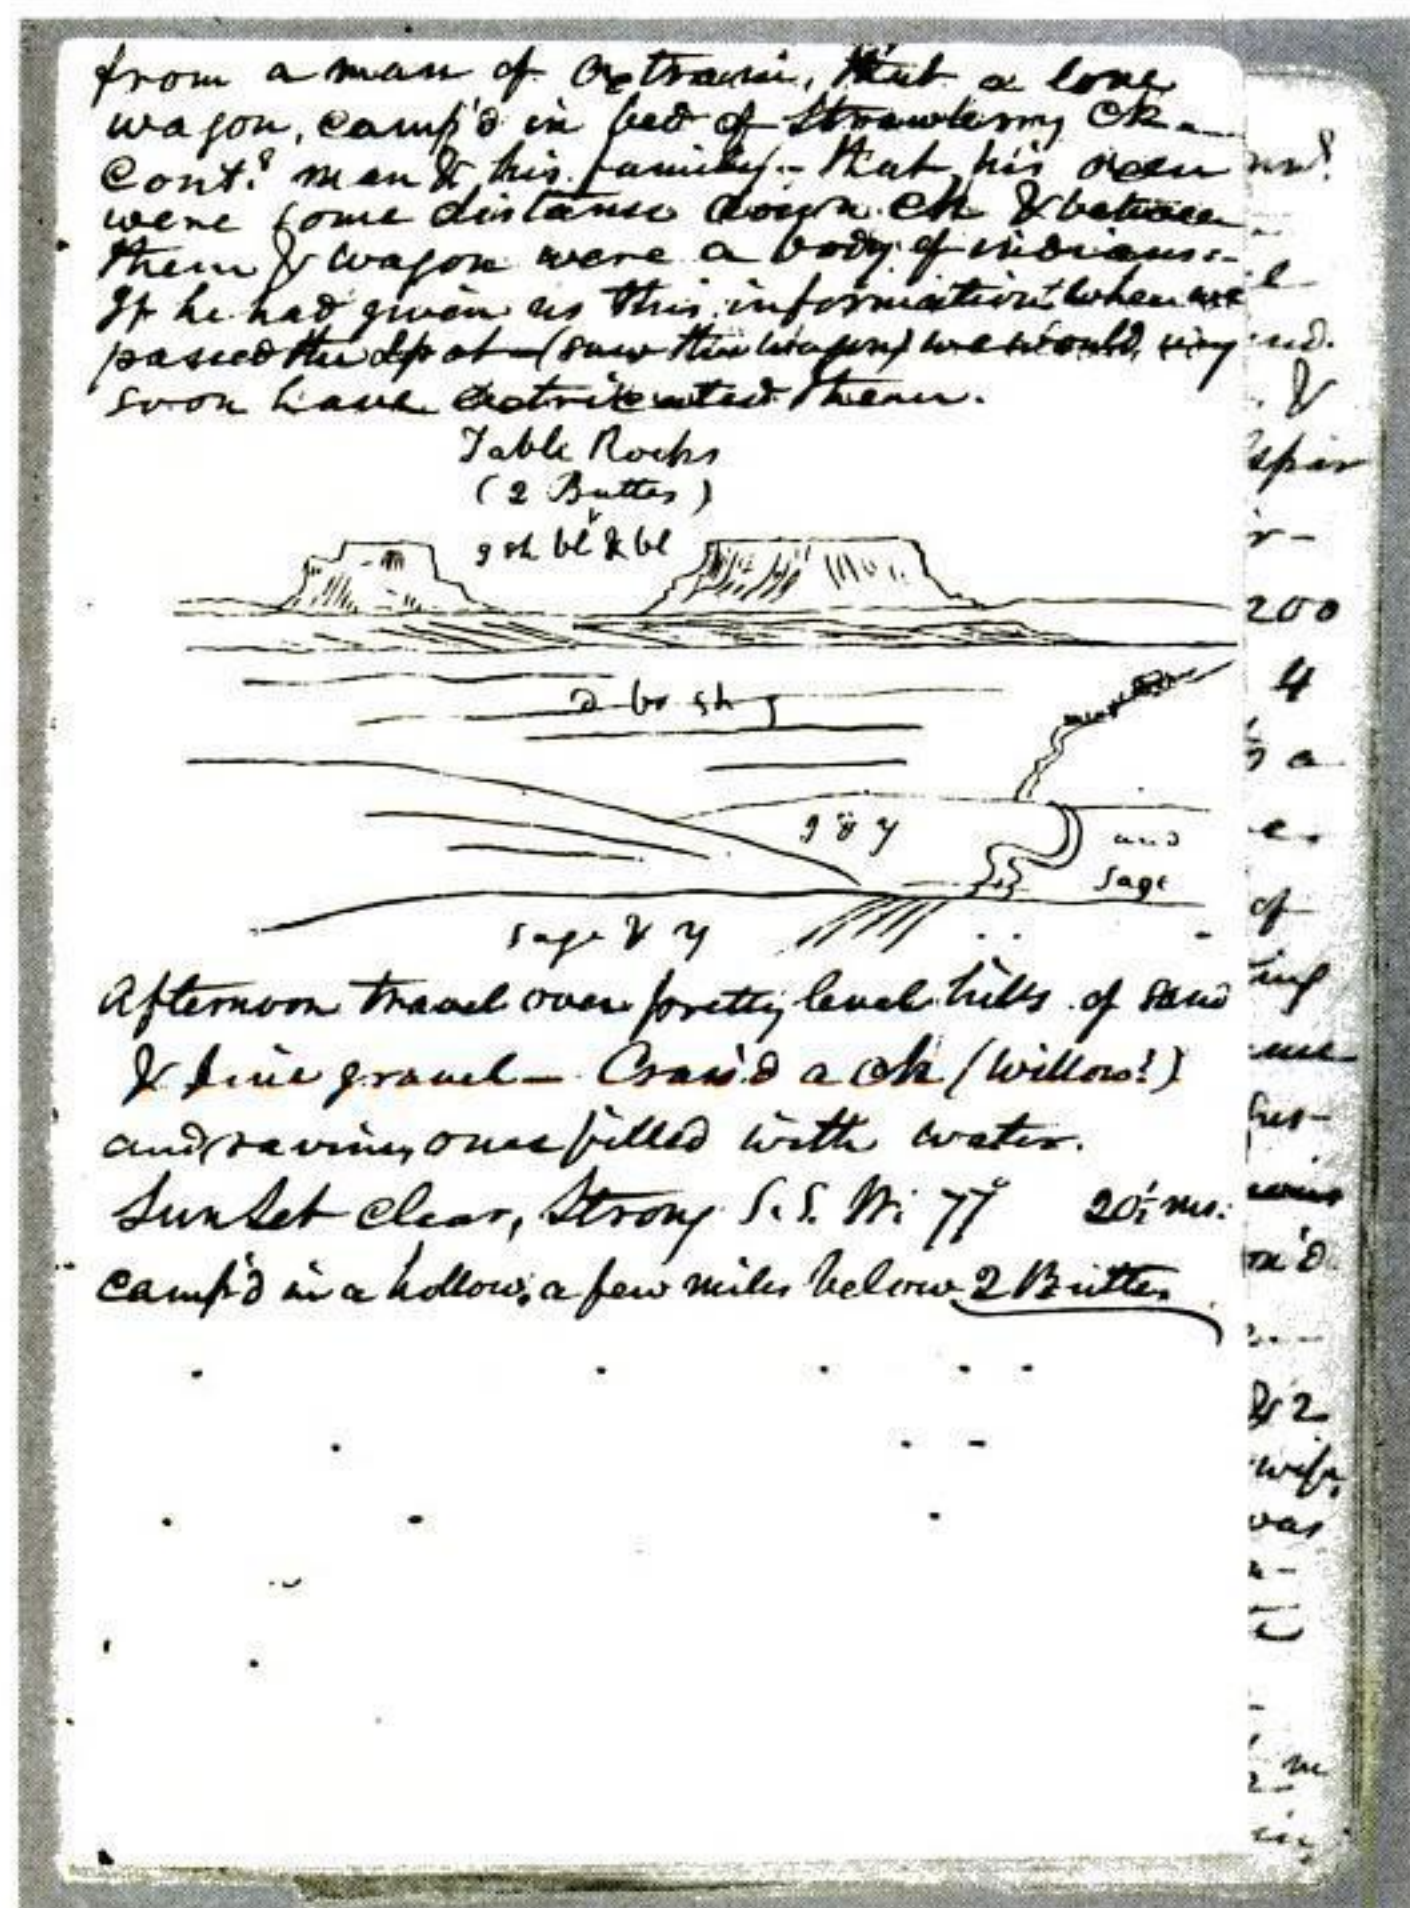 from a man of Oxtrain, that a lone
wagon, camp'd in bed of Strawberry Ck
Cont.g man & his family - that his oxen
were some distance down ck & between
them & wagon were a body of indians -
If he had given us this information when we
passed the spot - (saw the wagon) we would very
soon have extricated them.
Table Rocks
(2 Buttes)
gsh bl & bl
d br sh g
g & y
and
sage
sage & y
Afternoon travel over pretty level hills of sand
& fine gravel - Cross'd a ck (Willow?)
and ravine, once filled with water.
Sunset clear, Strong S. S. W. 77° 20 ms.
camp'd in a hollow, a few miles below 2 Buttes
200
4
a
of
&
& 2
wife,
was